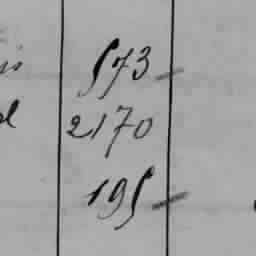 573
2170
195